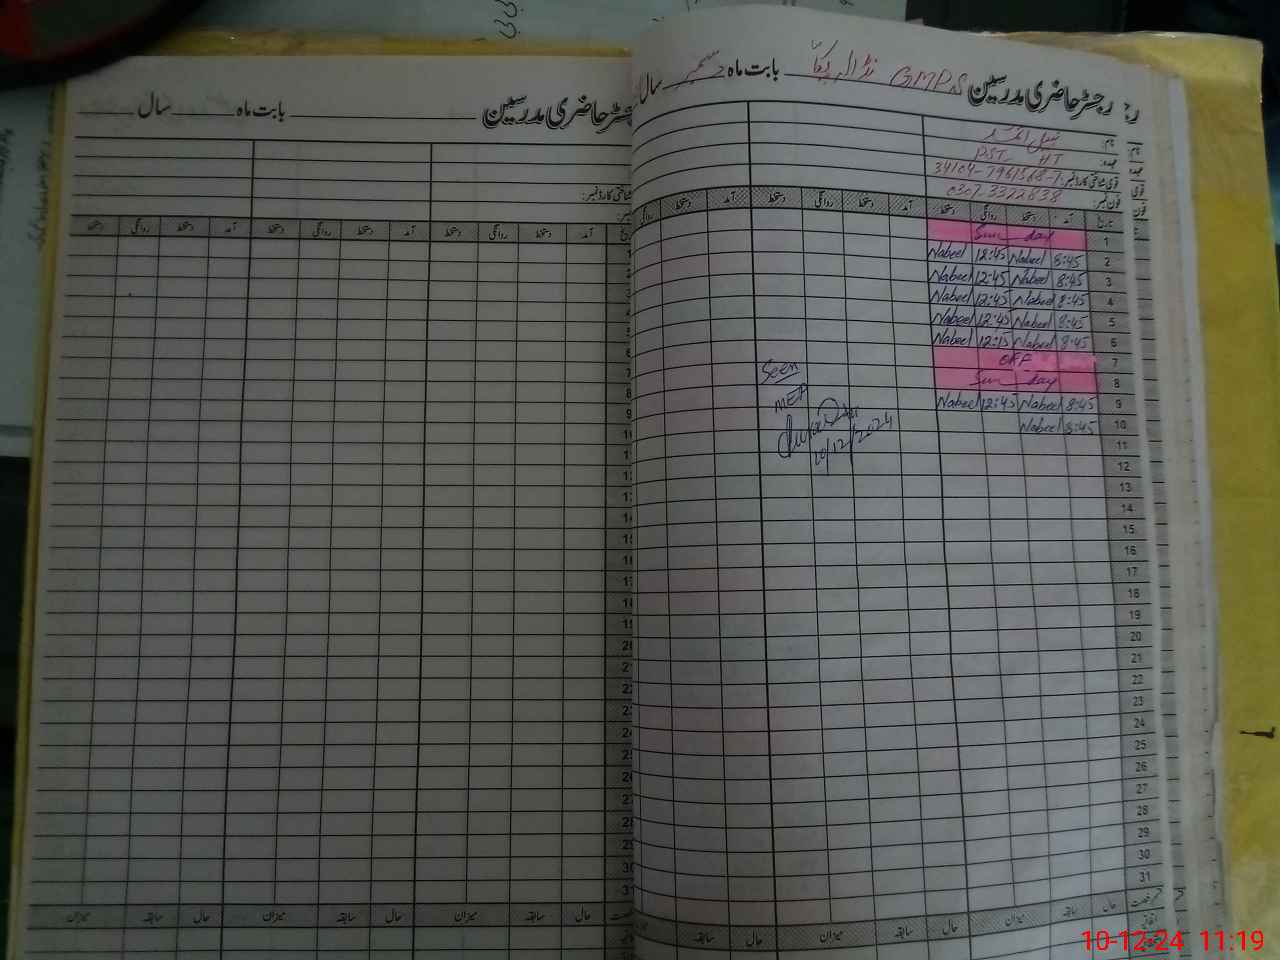 رجسٹر حاضری مدرسین GMPS نڈالہ پکا بابت ماہ دسمبر سال
نام: نبیل احمد
عہدہ: PST HT
قومی شناختی کارڈ نمبر: 34104-7961368-1
فون نمبر:
تاریخ آمد دستخط روانگی دستخط آمد دستخط روانگی دستخط آمد دستخط روانگی
1 Sun day
2 8:45 Nabeel 12:45 Nabeel
3 8:45 Nabeel 12:45 Nabeel
4 8:45 Nabeel 12:45 Nabeel
5 8:45 Nabeel 12:45 Nabeel
6 8:45 Nabeel 12:15 Nabeel
7 OFF
8 Sun day
9 8:45 Nabeel 12:45 Nabeel
10 8:45 Nabeel
Seen
10/12/2024
11
12
13
14
15
16
17
18
19
20
21
22
23
24
25
26
27
28
29
30
31
حال سابقہ میزان حال سابقہ میزان حال سابقہ
رجسٹر حاضری مدرسین بابت ماہ سال
آمد دستخط روانگی دستخط آمد دستخط روانگی دستخط آمد دستخط روانگی دستخط
حال سابقہ میزان حال سابقہ میزان حال سابقہ میزان
10-12-24 11:19